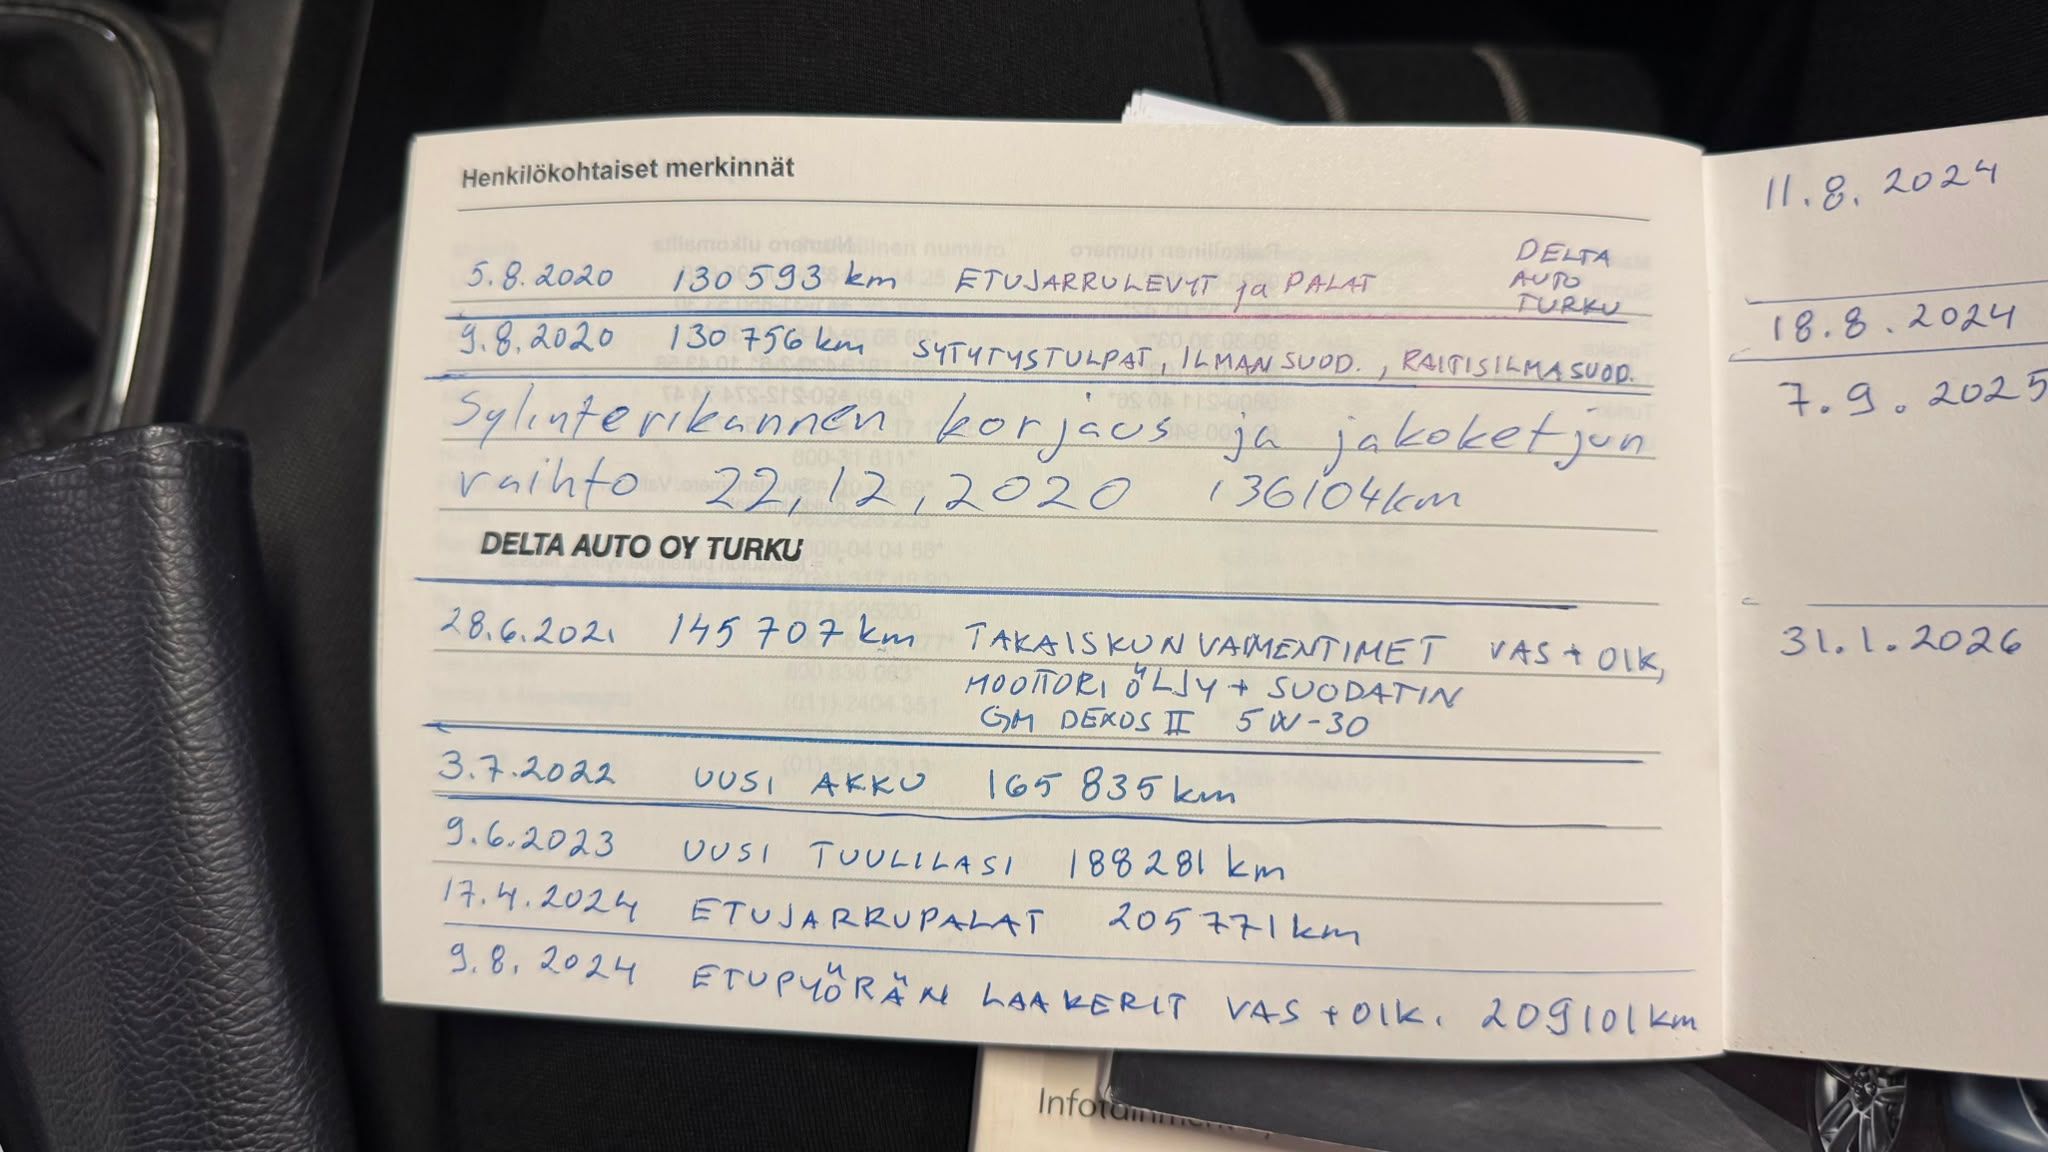 Henkilökohtaiset merkinnät
5.8.2020 130593 km ETUJARRULEVYT ja PALAT DELTA
AUTO
TURKU
9.8.2020 130756 km SYTYTYSTULPAT, ILMANSUOD., RAITISILMASUOD.
Sylinterikannen korjaus ja jakoketjun
vaihto 22,12,2020 136104km
DELTA AUTO OY TURKU
28.6.2021 145707 km TAKAISKUNVAIMENTIMET VAS + OIK,
MOOTTORIÖLJY + SUODATIN
GM DEXOS II 5W-30
3.7.2022 UUSI AKKU 165 835 km
9.6.2023 UUSI TUULILASI 188281 km
17.4.2024 ETUJARRUPALAT 205771 km
9.8.2024 ETUPYÖRÄN LAAKERIT VAS + OIK. 209101 km
11.8.2024
18.8.2024
7.9.2025
31.1.2026